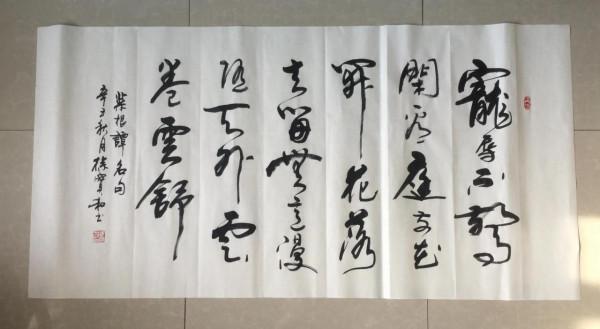 寵辱不驚
閑看庭前花
開花落
去留無意漫
隨天外雲
卷雲舒
菜根譚名句
辛丑秋月徐寶和书